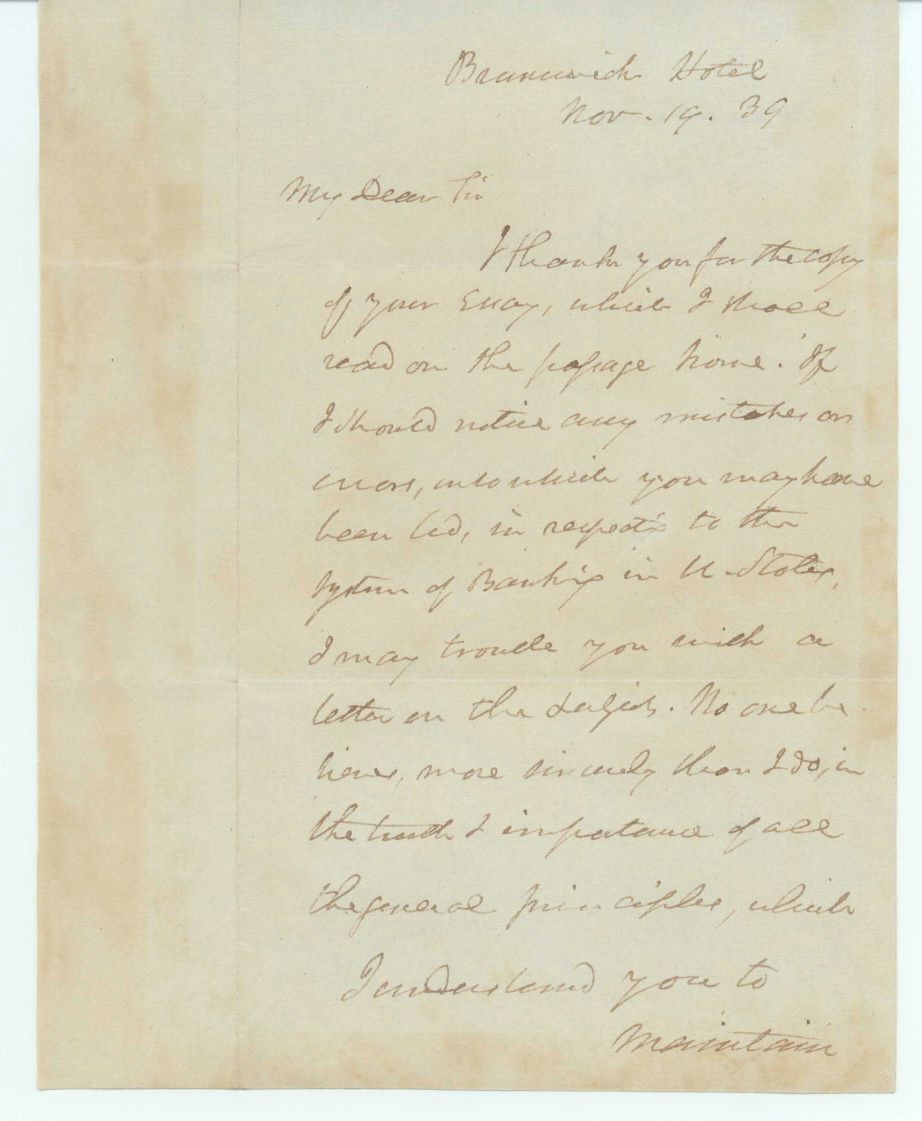 Brunswick Hotel
Nov. 19. 39
My Dear Sir
I thank you for the copy
of your Essay, which I shall
read on the passage home. If
I should notice any mistakes or
errors, into which you may have
been led, in respect to the
system of Banking in U. States,
I may trouble you with a
letter on the subject. No one be
lieves, more sincerely than I do, in
the truth & importance of all
the general principles, which
I understand you to
maintain